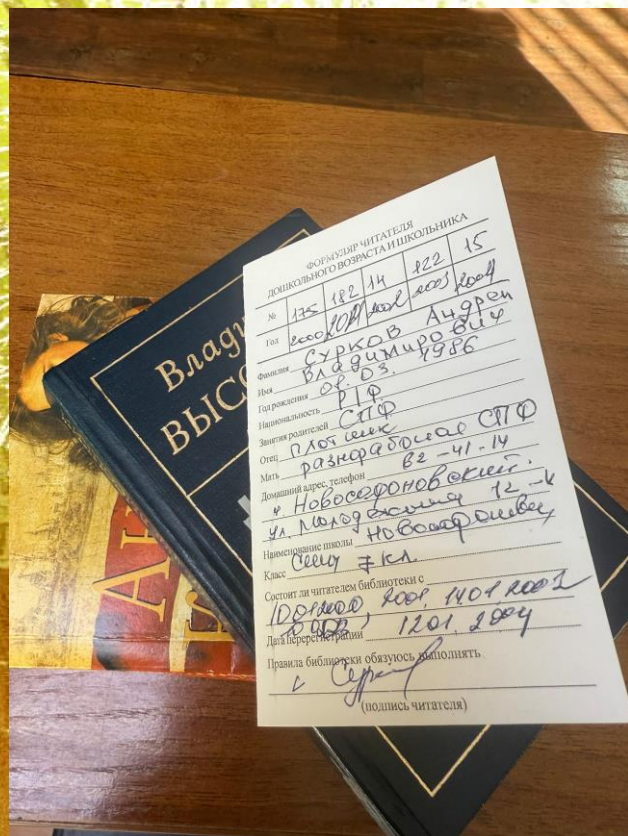 Влади
ВЫСО
АН
ФОРМУЛЯР ЧИТАТЕЛЯ
ДОШКОЛЬНОГО ВОЗРАСТА И ШКОЛЬНИКА
№ 175 182 14 122 15
Год 2000 2001 2002 2003 2004
Фамилия Сурков Андрей
Имя Владимирович
Год рождения 08.03. 1986
Национальность Р/Ф
Занятия родителей СПФ
Отец плотник
Мать разнорабочая СПФ
Домашний адрес, телефон 62-41-14
п. Новосафоновский.
ул. Молодежная 12-
Наименование школы Новосафоновск
Класс 7 кл.
Состоит ли читателем библиотеки с
2001, 1401 2002
Дата перерегистрации 1201, 2004
Правила библиотеки обязуюсь выполнять
(подпись читателя)